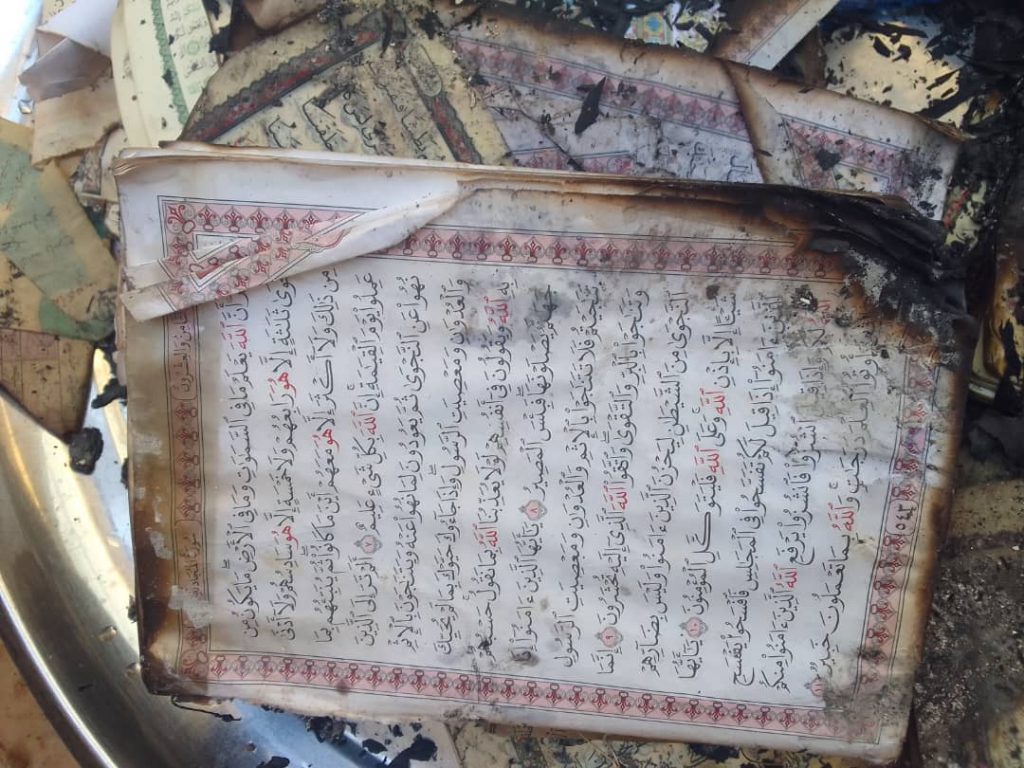 سورة المجادلة
أَنَّ ٱللَّهَ يَعْلَمُ مَا فِى ٱلسَّمَٰوَٰتِ وَمَا فِى ٱلْأَرْضِ مَا يَكُونُ مِن
ثَلَٰثَةٍ إِلَّا هُوَ رَابِعُهُمْ وَلَا خَمْسَةٍ إِلَّا هُوَ سَادِسُهُمْ وَلَآ أَدْنَىٰ
مِن ذَٰلِكَ وَلَآ أَكْثَرَ إِلَّا هُوَ مَعَهُمْ أَيْنَ مَا كَانُوا۟ ثُمَّ يُنَبِّئُهُم بِمَا
عَمِلُوا۟ يَوْمَ ٱلْقِيَٰمَةِ إِنَّ ٱللَّهَ بِكُلِّ شَىْءٍ عَلِيمٌ ٧ أَلَمْ تَرَ إِلَى ٱلَّذِينَ
نُهُوا۟ عَنِ ٱلنَّجْوَىٰ ثُمَّ يَعُودُونَ لِمَا نُهُوا۟ عَنْهُ وَيَتَنَٰجَوْنَ بِٱلْإِثْمِ
وَٱلْعُدْوَٰنِ وَمَعْصِيَتِ ٱلرَّسُولِ وَإِذَا جَآءُوكَ حَيَّوْكَ بِمَا لَمْ يُحَيِّكَ
بِهِ ٱللَّهُ وَيَقُولُونَ فِىٓ أَنفُسِهِمْ لَوْلَا يُعَذِّبُنَا ٱللَّهُ بِمَا نَقُولُ حَسْبُهُمْ
جَهَنَّمُ يَصْلَوْنَهَا فَبِئْسَ ٱلْمَصِيرُ ٨ يَٰٓأَيُّهَا ٱلَّذِينَ ءَامَنُوٓا۟ إِذَا
تَنَٰجَيْتُمْ فَلَا تَتَنَٰجَوْا۟ بِٱلْإِثْمِ وَٱلْعُدْوَٰنِ وَمَعْصِيَتِ ٱلرَّسُولِ
وَتَنَٰجَوْا۟ بِٱلْبِرِّ وَٱلتَّقْوَىٰ وَٱتَّقُوا۟ ٱللَّهَ ٱلَّذِىٓ إِلَيْهِ تُحْشَرُونَ ٩ إِنَّمَا
ٱلنَّجْوَىٰ مِنَ ٱلشَّيْطَٰنِ لِيَحْزُنَ ٱلَّذِينَ ءَامَنُوا۟ وَلَيْسَ بِضَآرِّهِمْ
شَيْـًٔا إِلَّا بِإِذْنِ ٱللَّهِ وَعَلَى ٱللَّهِ فَلْيَتَوَكَّلِ ٱلْمُؤْمِنُونَ ١٠ يَٰٓأَيُّهَا
ٱلَّذِينَ ءَامَنُوٓا۟ إِذَا قِيلَ لَكُمْ تَفَسَّحُوا۟ فِى ٱلْمَجَٰلِسِ فَٱفْسَحُوا۟ يَفْسَحِ
ٱللَّهُ لَكُمْ وَإِذَا قِيلَ ٱنشُزُوا۟ فَٱنشُزُوا۟ يَرْفَعِ ٱللَّهُ ٱلَّذِينَ ءَامَنُوا۟ مِنكُمْ
أُوتُوا۟ ٱلْعِلْمَ دَرَجَٰتٍ وَٱللَّهُ بِمَا تَعْمَلُونَ خَبِيرٌ ١١
٥٤٣